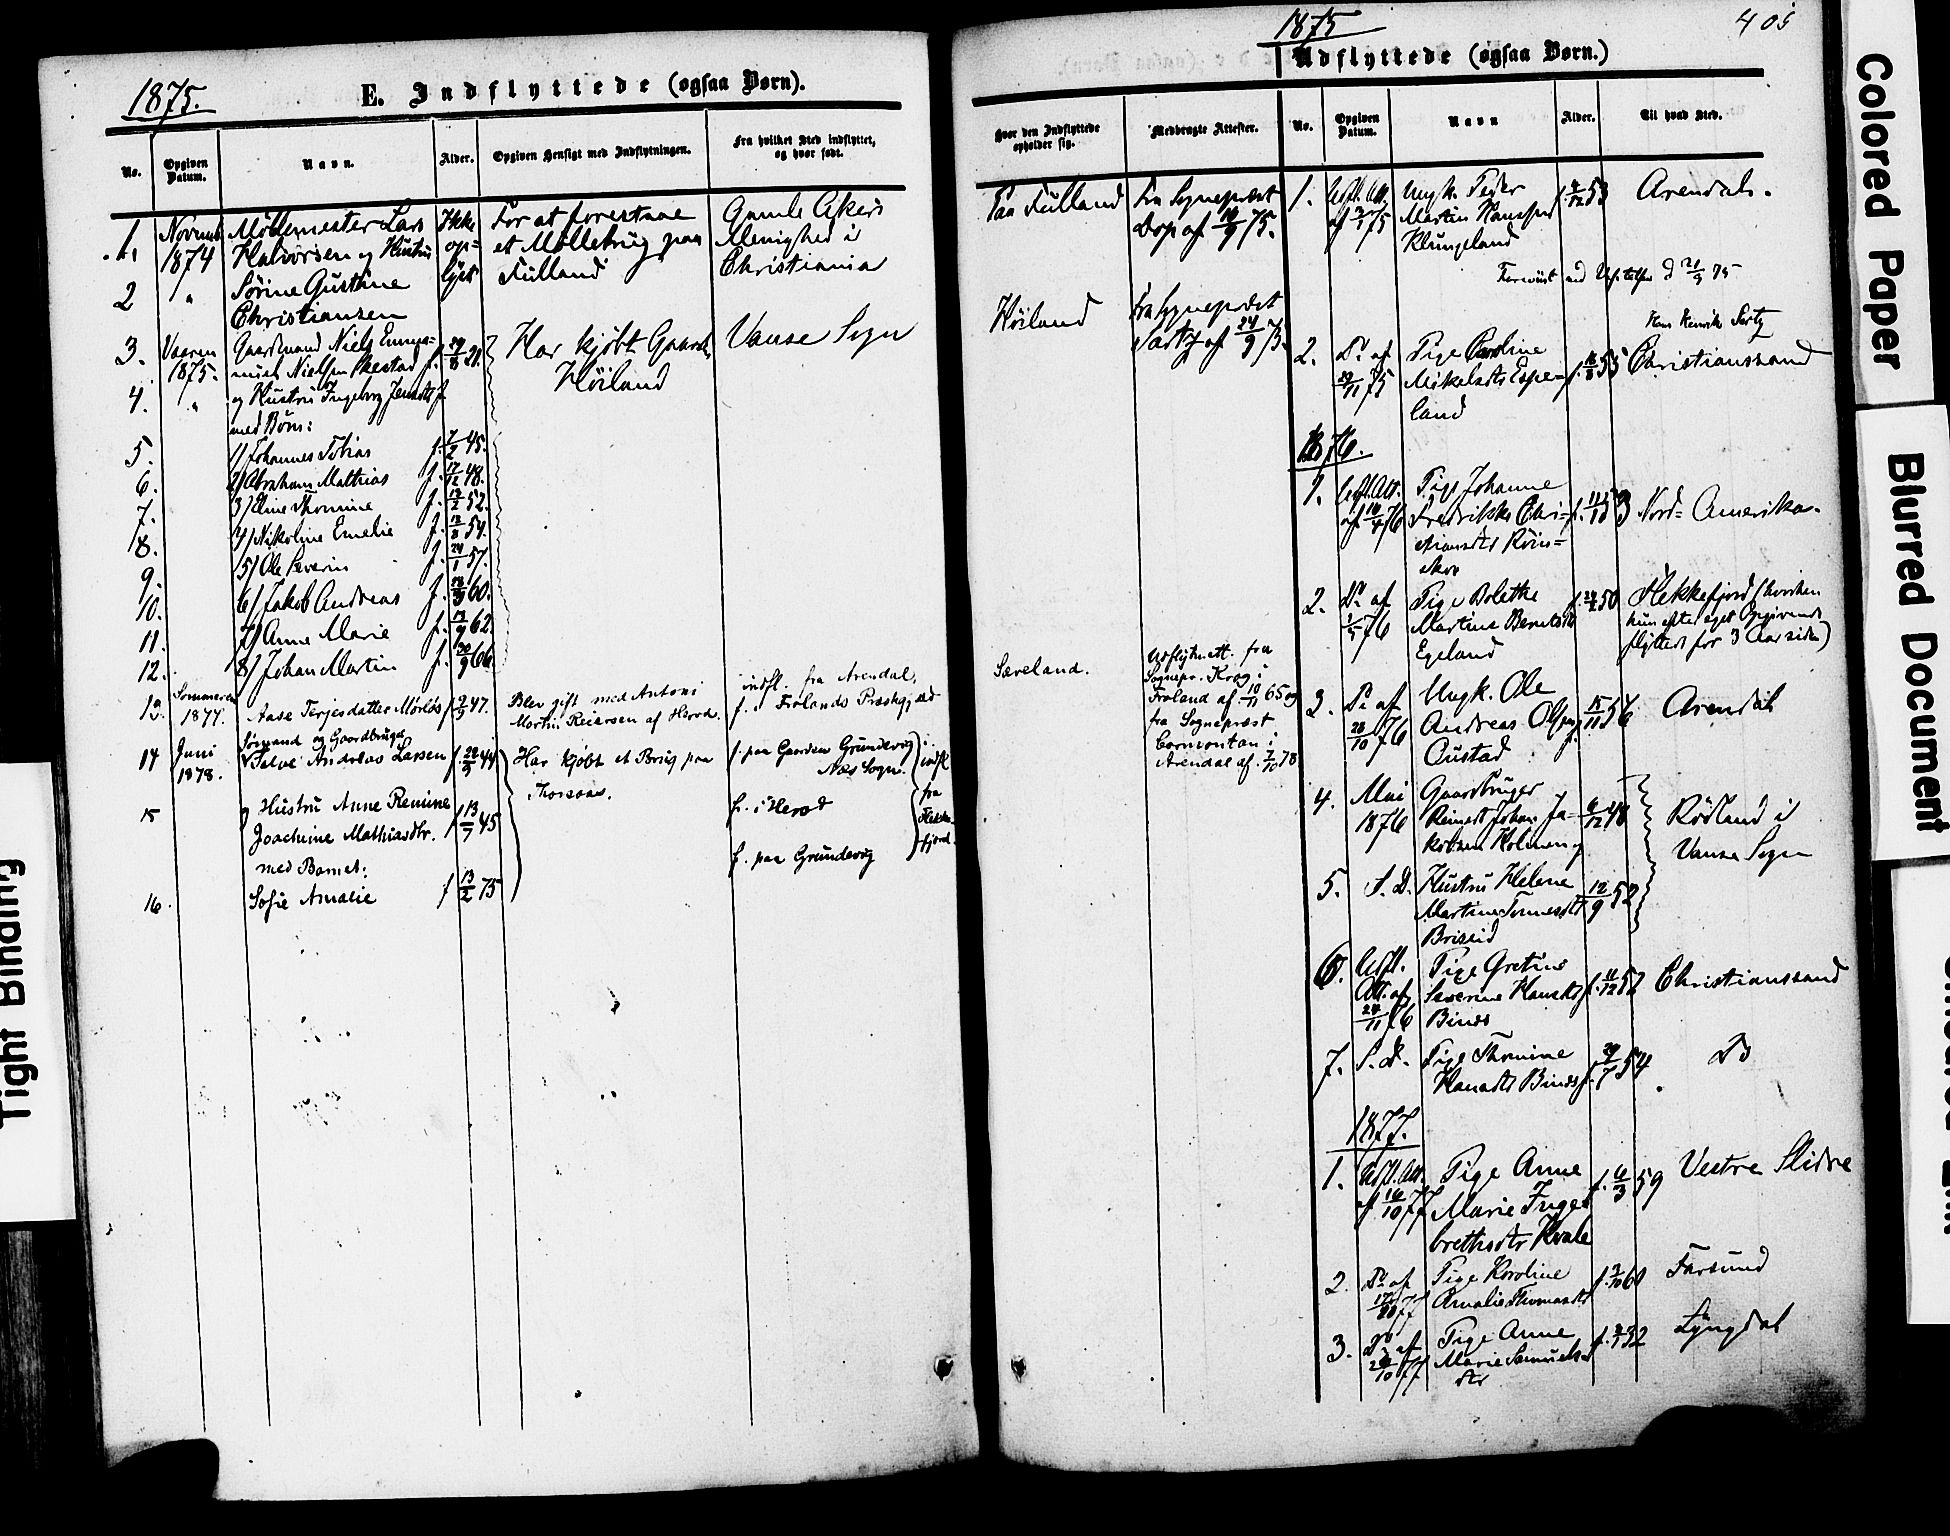 1875.
E. Indflyttede (ogsaa Børn).
No.
Opgiven Datum.
Navn.
Alder.
Opgiven Hensigt med Indflytningen.
Fra hvilket Sted indflyttet, og hvor født.
1.
Novemb
1874
Møllemester Lars
Halvorsen og Hustru
Ikke
op-
lyst
For at forestaae
et Møllebrug paa
Fulland
Gamle Akers
Menighed i
Christiania
2
"
Sørine Gustine
Christiansen
3.
Vaaren
1875.
Gaardmand Niels Emma-
nuel Nielsen
Har kjöbt Gaarden
Höiland
Vanse Sogn
4.
"
og Hustru Ingeborg
med Børn:
5.
1) Johannes Tobias
f. 7/2 45.
6.
2) Abraham Mathias
f. 17/12 48.
7.
3) Eline Thomine
f. 13/2 52.
8.
4) Nikoline Emelie
f. 13/8 54.
9.
5) Ole Severin
f. 24/1 57.
10.
6) Jakob Andreas
f. 60.
11.
7) Anne Marie
f. 13/9 62.
12.
8) Johan Martin
f. 20/9 66.
13.
Sommeren
1877.
Aase Terjesdatter
47.
Blev gift med Antoni
Martin Reiersen af Herod.
indfl. fra Arendal,
f. i Frolands Præstegjæld
14
Juni
1878.
Sømand og Gaardbruger
Salve Andreas Larsen
f. 22/3 44
Har kjöbt et Brug paa
f. paa Gaarden Grundevig i
Næs Sogn.
indfl
fra
Flekke-
fjord.
15
Hustru Anne Remine
Joachime Mathiasdtr.
f 13/7 45
f. i Herod
med Barnet:
f. paa Grundevig
16.
Sofie Amalie
f 13/2 75
1875
405
Udflyttede (ogsaa Børn.)
Hvor den Indflyttede opholder sig.
Medbragte Attester.
No.
Opgiven Datum.
Navn
Alder.
Til hvad Sted.
Paa Fulland
Fra Sogneprest
Dop af 75.
1.
Udfl. Att.
af 75
Ungk. Peder
Martin Hanssen
Klungeland
53
Arendal.
Höiland
Fra Sogneprest
Sartz af 24/9 75.
Hans Henrik Sartz
2.
Do af
75
Pige Caroline
Mikelsdtr Espe-
land
55
Christianssand
1876.
1.
Udfl. Att.
af 76
Pige Johanne
Fredrikke Chri-
stiansdtr
Nord-Amerika.
2.
Do af
76
Pige Bolette
Martine Berntsdtr
Egeland
50
Flekkefjord (hvorhen
hun efter eget Opgivende
flyttede for 3 Aar siden)
Sæveland.
Udflytn.att. fra
Sognepr. Krog i
Froland af 10/11 65 og
fra Sogneprest
i
Arendal af 7/10 78
3.
Do af
28/10 76
Ungk. Ole
Andreas Olsen
Austad
f. 15/11 56
Arendal
4.
Mai
1876
Gaardbruger
Reinert Johan Ja-
kobsen Holmen
6/12 48
Rödland i
Vanse Sogn
5.
S. D.
Hustru Helene
Martine Tønnesdtr
Briseid
12/9 52
6.
Udfl.
Att. af
24/11 76
Pige Gretine
Severine Hansdtr
f. 11/12 52
Christianssand
7.
S. D.
Pige Thomine
Hansdtr
f. 29/7 54
Do
1877.
1.
Udfl. Att.
af 16/10 77
Pige Anne
Marie Inge-
brethsdtr Kvale
f. 6/3 59
Vestre Slidre
2.
Do af
77
Pige Karoline
Amalie Thomasdtr
Farsund
3.
Do af
77
Pige Anne
Marie Samuels-
dtr
Lyngdal
Colored Paper
Blurred Document
Tight Binding